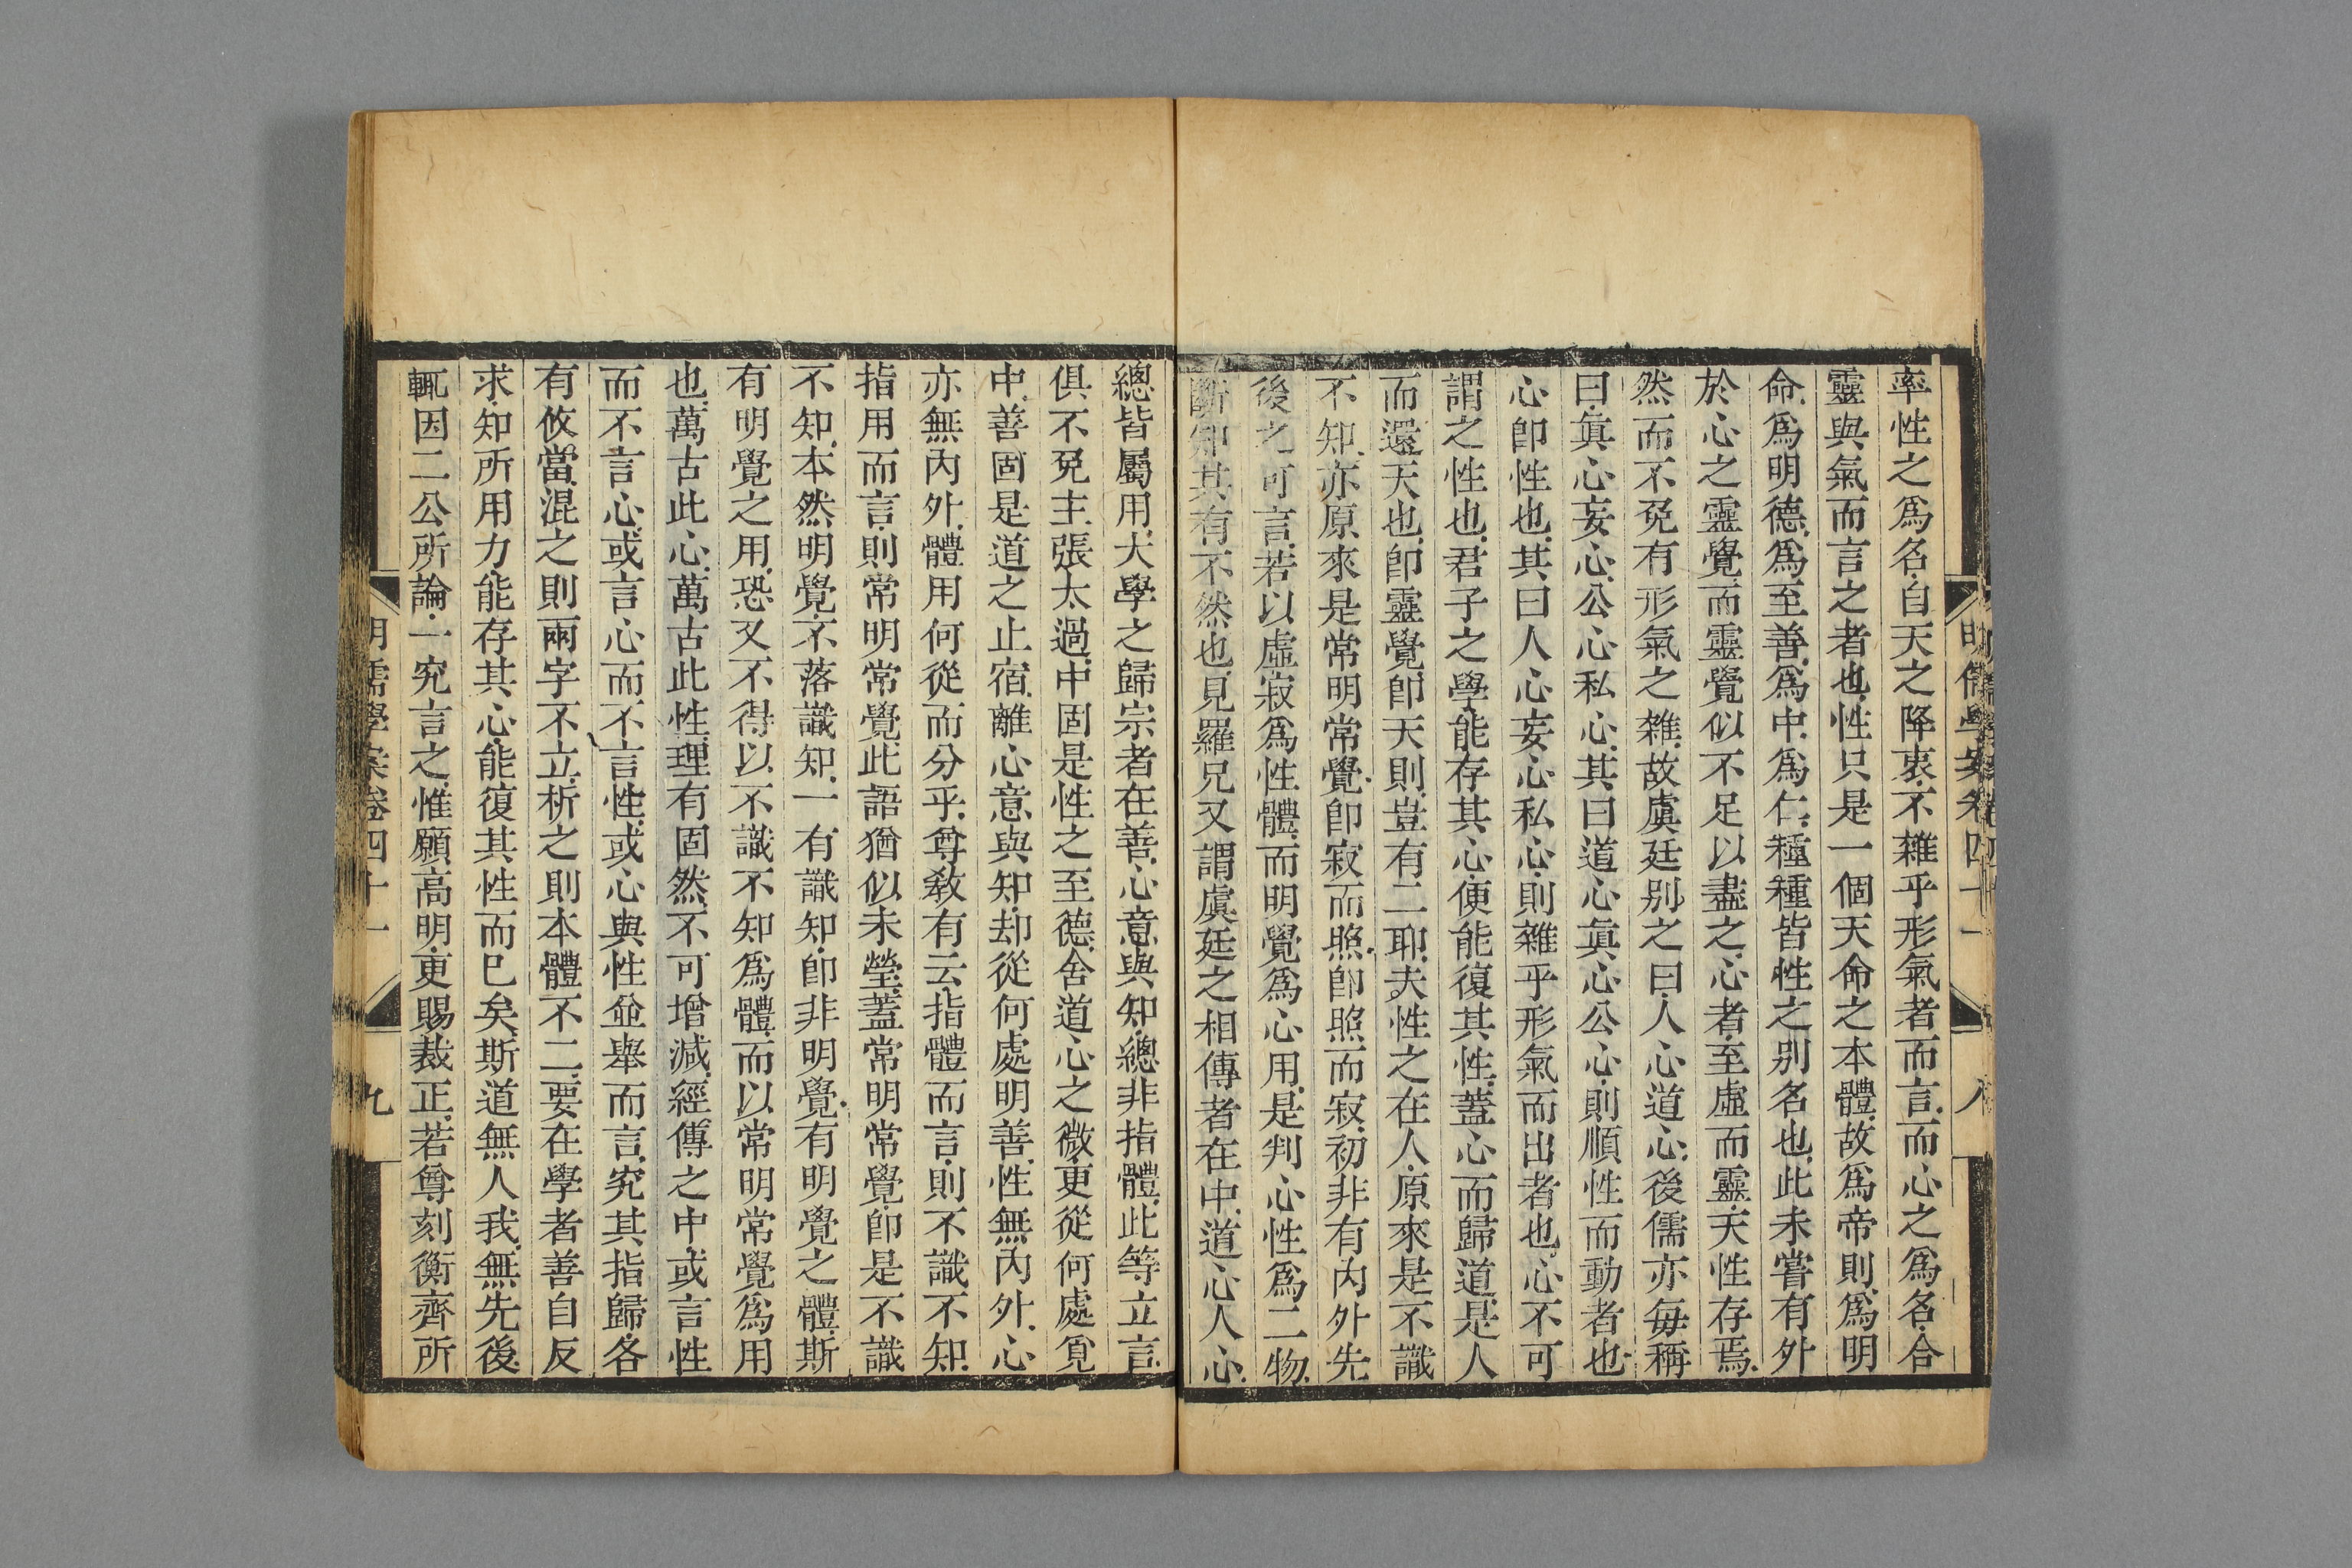 率性之爲名自天之降衷不雜乎形氣者而言而心之爲名合
靈與氣而言之者也性只是一個天命之本體故爲帝則爲明
命爲明德爲至善爲中爲仁種種皆性之别名也此未嘗有外
於心之靈覺而靈覺似不足以盡之心者至虛而靈天性存焉
然而不免有形氣之雜故虞廷别之曰人心道心後儒亦每稱
曰眞心妄心公心私心其曰道心眞心公心則順性而動者也
心卽性也其曰人心妄心私心則雜乎形氣而出者也心不可
謂之性也君子之學能存其心便能復其性蓋心而歸道是人
而還天也卽靈覺卽天則豈有二耶夫性之在人原來是不識
不知亦原來是常明常覺卽寂而照卽照而寂初非有內外先
後之可言若以虛寂爲性體而明覺爲心用是判心性爲二物
斷知其有不然也見羅兄又謂虞廷之相傳者在中道心人心
總皆屬用大學之歸宗者在善心意與知總非指體此等立言
俱不免主張太過中固是性之至德舍道心之微更從何處覓
中善固是道之止宿離心意與知却從何處明善性無內外心
亦無內外體用何從而分乎尊教有云指體而言則不識不知
指用而言則常明常覺此語猶似未瑩蓋常明常覺卽是不識
不知本然明覺不落識知一有識知卽非明覺有明覺之體斯
有明覺之用恐又不得以不識不知爲體而以常明常覺爲用
也萬古此心萬古此性理有固然不可增減經傳之中或言性
而不言心或言心而不言性或心與性並舉而言究其指歸各
有攸當混之則兩字不立析之則本體不二要在學者善自反
求知所用力能存其心能復其性而已矣斯道無人我無先後
輒因二公所論一究言之惟願高明更賜裁正若尊刻衡齊所
明儒學案卷四十一
九
明儒學案卷四十一
八